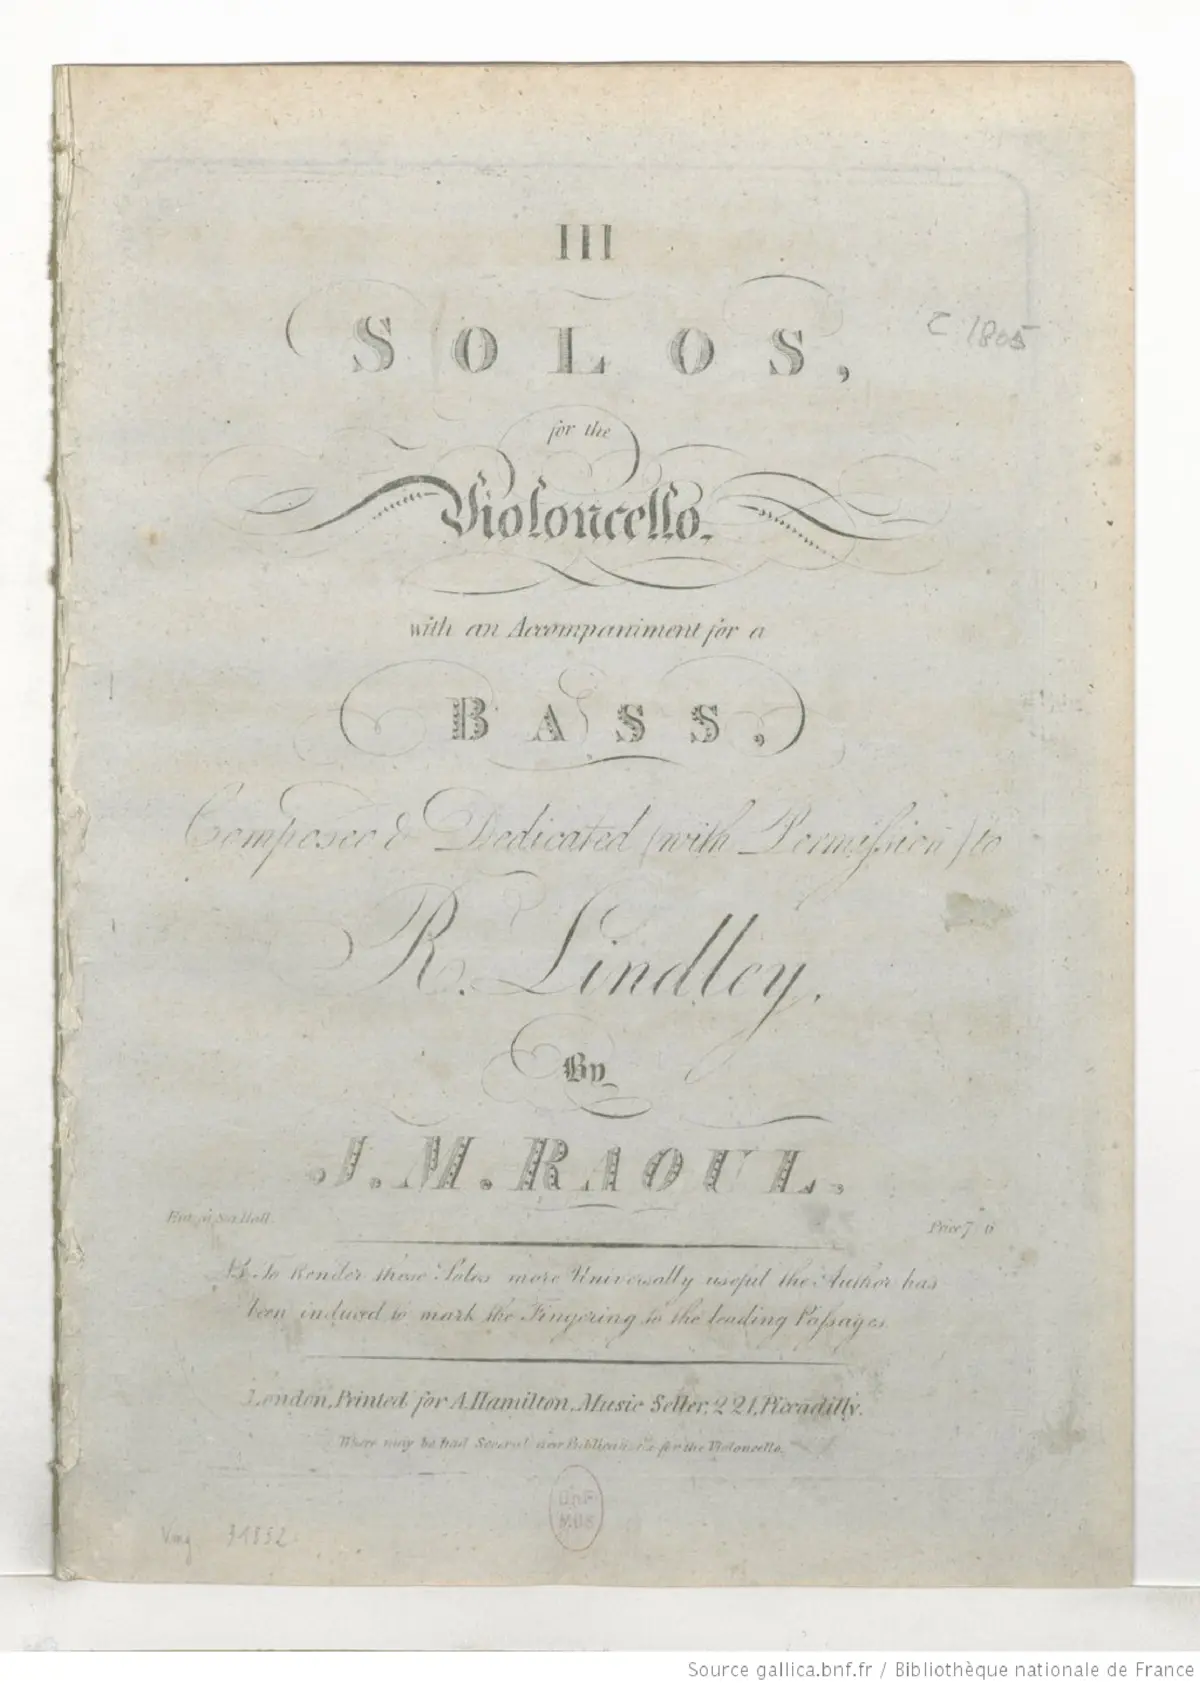 III
SOLOS,
c 1805
for the
Violoncello.
with an Accompaniment for a
BASS,
Composed & Dedicated (with Permiſsion) to
R. Lindley,
By
J. M. RAOUL.
Ent. at Sta. Hall.
Price 7 6
To Render these Solos more Universally useful the Author has
been induced to mark the Fingering to the leading Paſsages
London, Printed for A. Hamilton, Music Seller, 221, Piccadilly.
Where may be had Several new Publications for the Violoncello.
BnF
MUS
Vmg 31852
Source gallica.bnf.fr / Bibliothèque nationale de France